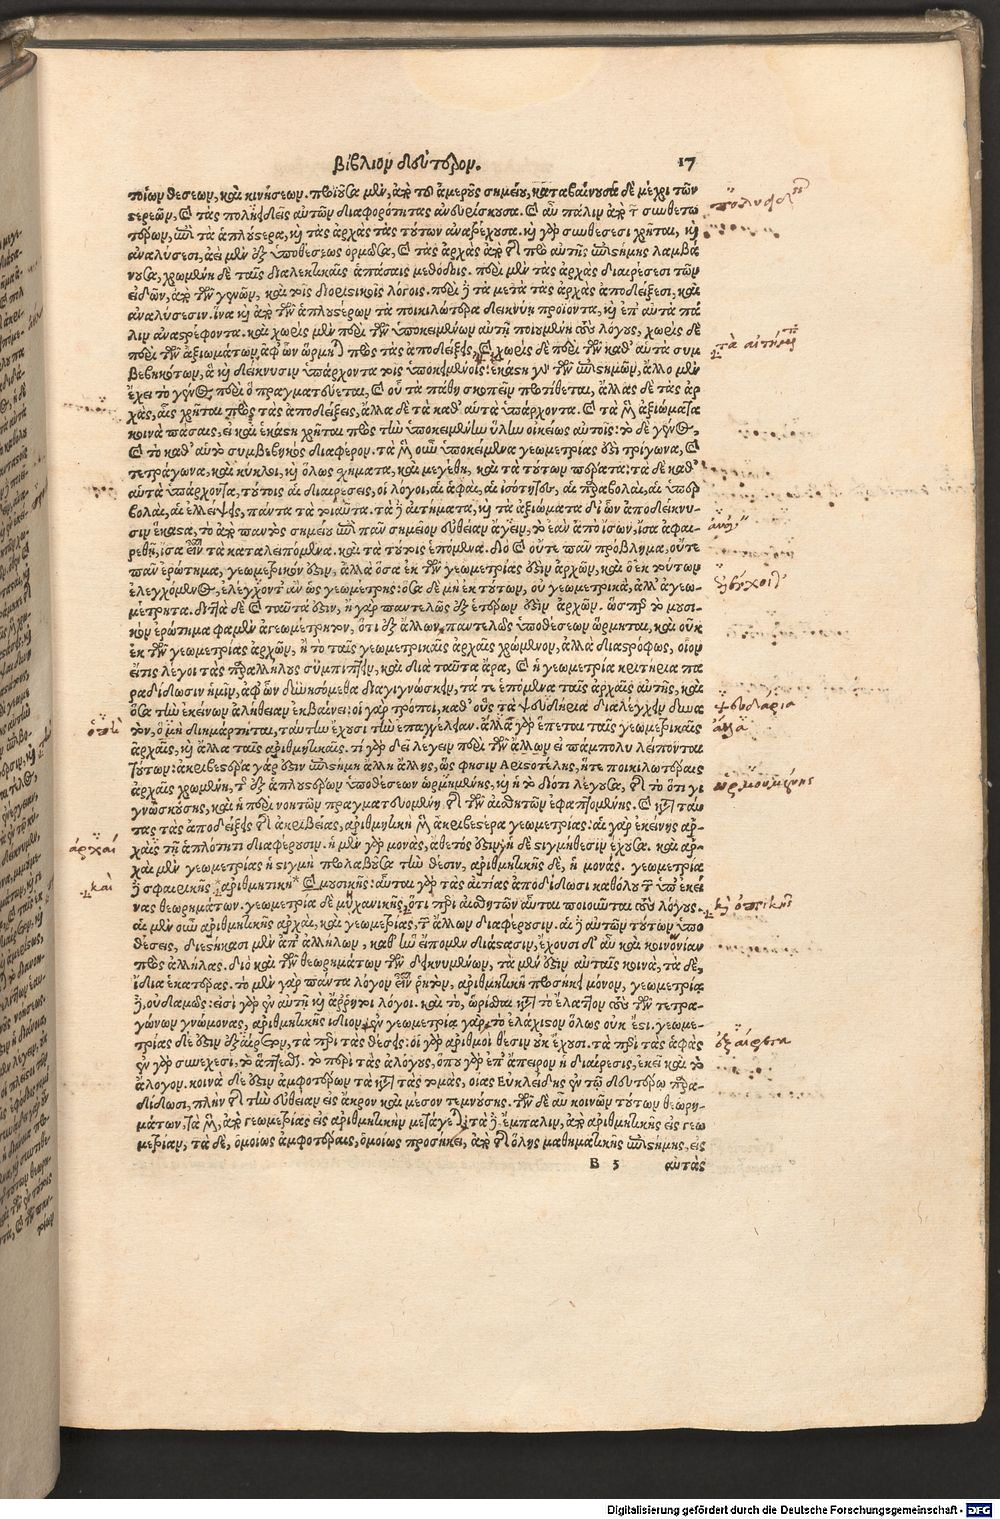 βίβλιον δεύτερον. 17
ποίων θέσεων, καὶ κινήσεων. προϊοῦσα μὲν, ἀπὸ τοῦ ἀμεροῦς σημείου, καταβαίνουσα δὲ μέχρι τῶν
στερεῶν, καὶ τὰς πολυειδεῖς αὐτῶν διαφορότητας ἀνευρίσκουσα. καὶ αὖ πάλιν ἀπὸ τῶν συνθετω
τέρων, ἐπὶ τὰ ἁπλούστερα, καὶ τὰς ἀρχὰς τὰς τούτων ἀνατρέχουσα. καὶ γὰρ συνθέσεσι χρῆται, καὶ
ἀναλύσεσι, ἀεὶ μὲν ἐξ ὑποθέσεως ὁρμῶσα, καὶ τὰς ἀρχὰς ἀπὸ τῆς πρὸ αὐτῆς ἐπιστήμης λαμβά
νουσα, χρωμένη δὲ ταῖς διαλεκτικαῖς ἁπάσαις μεθόδοις. περὶ μὲν τὰς ἀρχὰς διαιρέσεσι τῶν
εἰδῶν, ἀπὸ τῶν γενῶν, καὶ τοῖς διοριστικοῖς λόγοις. περὶ δὲ τὰ μετὰ τὰς ἀρχὰς ἀποδείξεσι, καὶ
ἀναλύσεσιν. ἵνα καὶ ἀπὸ τῶν ἁπλουστέρων τὰ ποικιλώτερα δεικνύῃ προϊόντα, καὶ ἐπ' αὐτὰ πά
λιν ἀναστρέφοντα. καὶ χωρὶς μὲν περὶ τῶν ὑποκειμένων αὐτῇ ποιουμένη τοὺς λόγους, χωρὶς δὲ
περὶ τῶν ἀξιωμάτων, ἀφ' ὧν ὥρμηται πρὸς τὰς ἀποδείξεις, καὶ χωρὶς δὲ περὶ τῶν καθ' αὑτὰ συμ
βεβηκότων, ἃ καὶ δείκνυσιν ὑπάρχοντα τοῖς ὑποκειμένοις. ἑκάστη γὰρ τῶν ἐπιστημῶν, ἄλλο μὲν
ἔχει τὸ γένος, περὶ ὃ πραγματεύεται, καὶ οὗ τὰ πάθη σκοπεῖν προτίθεται, ἄλλας δὲ τὰς ἀρ
χὰς, αἷς χρῆται πρὸς τὰς ἀποδείξεις, ἄλλα δὲ τὰ καθ' αὑτὰ ὑπάρχοντα. καὶ τὰ μὲν ἀξιώματα
κοινὰ πάσαις, εἰ καὶ ἑκάστη χρῆται πρὸς τὴν ὑποκειμένην ὕλην οἰκείως αὐτοῖς· τὸ δὲ γένος,
καὶ τὸ καθ' αὑτὸ συμβεβηκὸς διάφερον. τὰ μὲν οὖν ὑποκείμενα γεωμετρίας ἐστὶ τρίγωνα, καὶ
τετράγωνα, καὶ κύκλοι, καὶ ὅλως σχήματα, καὶ μεγέθη, καὶ τὰ τούτων πέρατα: τὰ δὲ καθ'
αὑτὰ ὑπάρχοντα, τούτοις αἱ διαιρέσεις, οἱ λόγοι, αἱ ἁφαὶ, αἱ ἰσότητες, αἱ παραβολαὶ, αἱ ὑπερ
βολαὶ, αἱ ἐλλείψεις, πάντα τὰ τοιαῦτα. τὰ δὲ αἰτήματα, καὶ τὰ ἀξιώματα δι' ὧν ἀποδείκνυ-
σιν ἕκαστα, τὸ ἀπὸ παντὸς σημείου ἐπὶ πᾶν σημεῖον εὐθεῖαν ἄγειν, τὸ ἐὰν ἀπὸ ἴσων, ἴσα ἀφαι-
ρεθῇ, ἴσα εἶναι τὰ καταλειπόμενα. καὶ τὰ τούτοις ἑπόμενα. διὸ καὶ οὔτε πᾶν πρόβλημα, οὔτε
πᾶν ἐρώτημα, γεωμετρικόν ἐστιν, ἀλλὰ ὅσα ἐκ τῶν γεωμετρίας ἐστὶν ἀρχῶν, καὶ ὁ ἐκ τούτων
ἐλεγχόμενος, ἐλέγχοιτ' ἂν ὡς γεωμέτρης: ὅσα δὲ μὴ ἐκ τούτων, οὐ γεωμετρικὰ, ἀλλ' ἀγεω-
μέτρητα. διττὰ δὲ καὶ ταῦτά ἐστιν, ἢ γὰρ παντελῶς ἐξ ἑτέρων ἐστὶν ἀρχῶν. ὥσπερ τὸ μουσι-
κὸν ἐρώτημα φαμὲν ἀγεωμέτρητον, ὅτι ἐξ ἄλλων παντελῶς ὑποθέσεων ὥρμηται, καὶ οὐκ
ἐκ τῶν γεωμετρίας ἀρχῶν, ἢ τὸ ταῖς γεωμετρικαῖς ἀρχαῖς χρώμενον, ἀλλὰ διαστρόφως, οἷον
εἴ τις λέγοι τὰς παραλλήλους συμπίπτειν, καὶ διὰ ταῦτα ἄρα, καὶ ἡ γεωμετρία κριτήρια πα
ραδίδωσιν ἡμῖν, ἀφ' ὧν δυνησόμεθα διαγιγνώσκειν, τά τε ἑπόμενα ταῖς ἀρχαῖς αὐτῆς, καὶ
ὅσα τῶν ἐκείνων ἀλήθειαν ἐκβαίνει: οἱ γὰρ τρόποι, καθ' οὓς τὰ ψευδήρια διαλέγχειν δυνα
τὸν, ὁ μὴ διημάρτηται, ταύτην ἔχουσι τὴν ἐπαγγελίαν. ἄλλα γὰρ ἕπεται ταῖς γεωμετρικαῖς
ἀρχαῖς, καὶ ἄλλα ταῖς ἀριθμητικαῖς. τί γὰρ δεῖ λέγειν περὶ τῶν ἄλλων εἰ πάμπολυ λείπονται
τούτων: ἀκριβεστέρα γάρ ἐστιν ἐπιστήμη ἄλλη ἄλλης, ὥς φησιν Ἀριστοτέλης, ἥτε ποικιλωτέραις
ἀρχαῖς χρωμένη, τῆς ἐξ ἁπλουστέρων ὑποθέσεων ὡρμημένης, καὶ ἡ τὸ διότι λέγουσα, τῆς τὸ ὅτι γι
γνωσκούσης, καὶ ἡ περὶ νοητῶν πραγματευομένη, τῆς τῶν αἰσθητῶν ἐφαπτομένης. καὶ κατὰ ταύ
τας τὰς ἀποδείξεις τῆς ἀκριβείας, ἀριθμητικὴ μὲν ἀκριβεστέρα γεωμετρίας: αἱ γὰρ ἐκείνης ἀρ-
χαῖς τῇ ἁπλότητι διαφέρουσιν. ἡ μὲν γὰρ μονὰς, ἄθετός ἐστιν, ἡ δὲ στιγμὴ θέσιν ἔχουσα. καὶ ἀρ-
χαὶ μὲν γεωμετρίας ἡ στιγμὴ προλαβοῦσα τὴν θέσιν, ἀριθμητικῆς δὲ, ἡ μονάς. γεωμετρία
δὲ σφαιρικῆς, ἀριθμητικὴ* καὶ μουσικῆς: αὗται γὰρ τὰς αἰτίας ἀποδίδωσι καθόλου τῶν ὑπ' ἐκεί
νας θεωρημάτων. γεωμετρία δὲ μηχανικῆς, ὅτι περὶ αἰσθητῶν αὗται ποιοῦνται τοὺς λόγους.
αἱ μὲν οὖν ἀριθμητικῆς ἀρχαὶ, καὶ γεωμετρίας, τῶν ἄλλων διαφέρουσιν. αἱ δὲ αὐτῶν τούτων ὑπο
θέσεις, διεστήκασι μὲν ἀπ' ἀλλήλων, καθ' ἣν εἴπομεν διάστασιν, ἔχουσι δ' αὖ καὶ κοινωνίαν
πρὸς ἀλλήλας. διὸ καὶ τῶν θεωρημάτων τῶν δεικνυμένων, τὰ μέν ἐστιν αὐταῖς κοινὰ, τὰ δὲ,
ἴδια ἑκατέρας. τὸ μὲν γὰρ πάντα λόγον εἶναι ῥητὸν, ἀριθμητικῇ προσήκει μόνον, γεωμετρίᾳ
δὲ, οὐδαμῶς: εἰσὶ γὰρ ἐν αὐτῇ καὶ ἄρρητοι λόγοι. καὶ τὸ, ὡρίσθαι κατὰ τὸ ἔλαττον τοὺς τῶν τετρα-
γώνων γνώμονας, ἀριθμητικῆς ἴδιον, ἐν γεωμετρίᾳ γὰρ τὸ ἐλάχιστον ὅλως οὐκ ἔστι. γεωμε-
τρίας δέ ἐστιν ἐξαίρετον, τὰ περὶ τὰς θέσεις: οἱ γὰρ ἀριθμοὶ θέσιν οὐκ ἔχουσι. τὰ περὶ τὰς ἁφὰς
ἐν γὰρ συνεχέσι, τὸ ἅπτεσθαι. τὸ περὶ τὰς ἀλόγους, ὅπου γὰρ ἐπ' ἄπειρον ἡ διαίρεσις, ἐκεῖ καὶ τὸ
ἄλογον. κοινὰ δέ ἐστιν ἀμφοτέρων τὰ κατὰ τὰς τομὰς, οἵας Εὐκλείδης ἐν τῷ δευτέρῳ παρα-
δίδωσι, πλὴν τῆς τὴν εὐθεῖαν εἰς ἄκρον καὶ μέσον τεμνούσης. τῶν δὲ αὖ κοινῶν τούτων θεωρη-
μάτων, τὰ μὲν, ἀπὸ γεωμετρίας εἰς ἀριθμητικὴν μετάγεται, τὰ δὲ ἔμπαλιν, ἀπὸ ἀριθμητικῆς εἰς γεω
μετρίαν, τὰ δὲ, ὁμοίως ἀμφοτέραις, ὁμοίως προσήκει, ἀπὸ τῆς ὅλης μαθηματικῆς ἐπιστήμης, εἰς
B 5 αὐτὰς
ἀρχαί
καὶ
ψευδάρια
ἄλλα
ὡρμουμένης
καὶ ὀπτικῆς
ἐξαίρετα
Digitalisierung gefördert durch die Deutsche Forschungsgemeinschaft - DFG